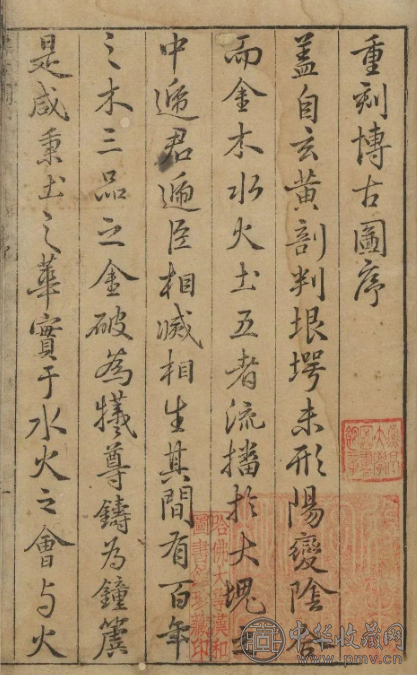 重刻博古圖序
蓋自玄黃剖判垠堮未形陽變陰合
而金木水火土五者流播於大塊之
中遞君遞臣相滅相生其間有百年
之木三品之金破為犧尊鑄為鐘簴
是咸秉土之華實于水火之會与火
哈佛大學漢和
圖書館珍藏印
中华收藏网
www.pmv.cn